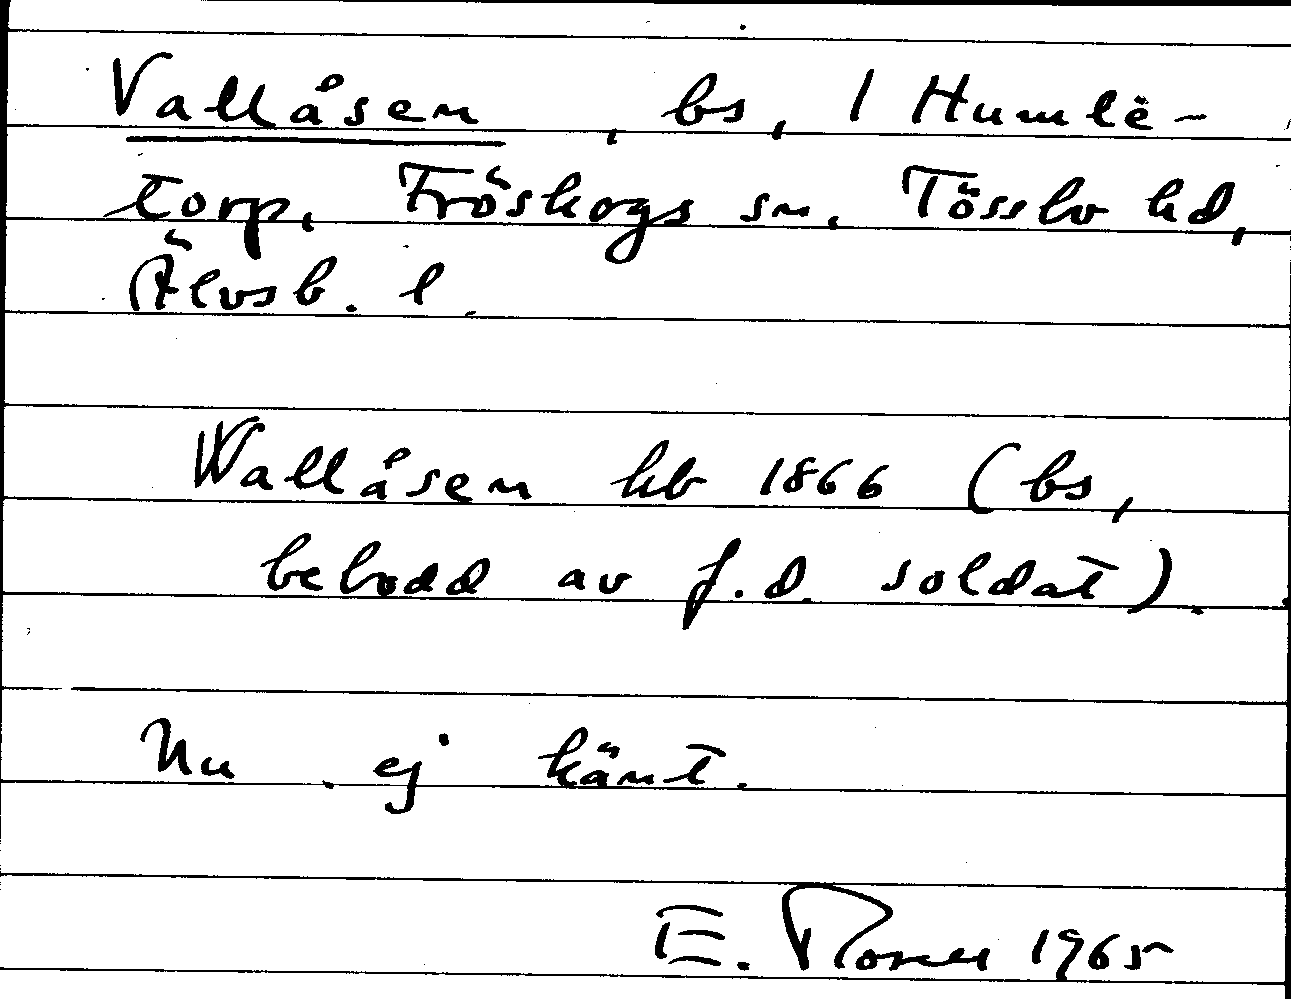 Vallåsen, bs, 1 Humle-
torp, Fröskogs sn, Tössbo hd,
Älvsb. l.
Wallåsen hb 1866 (bs,
bebodd av f.d. soldat).
Nu ej känt.
E. 1965